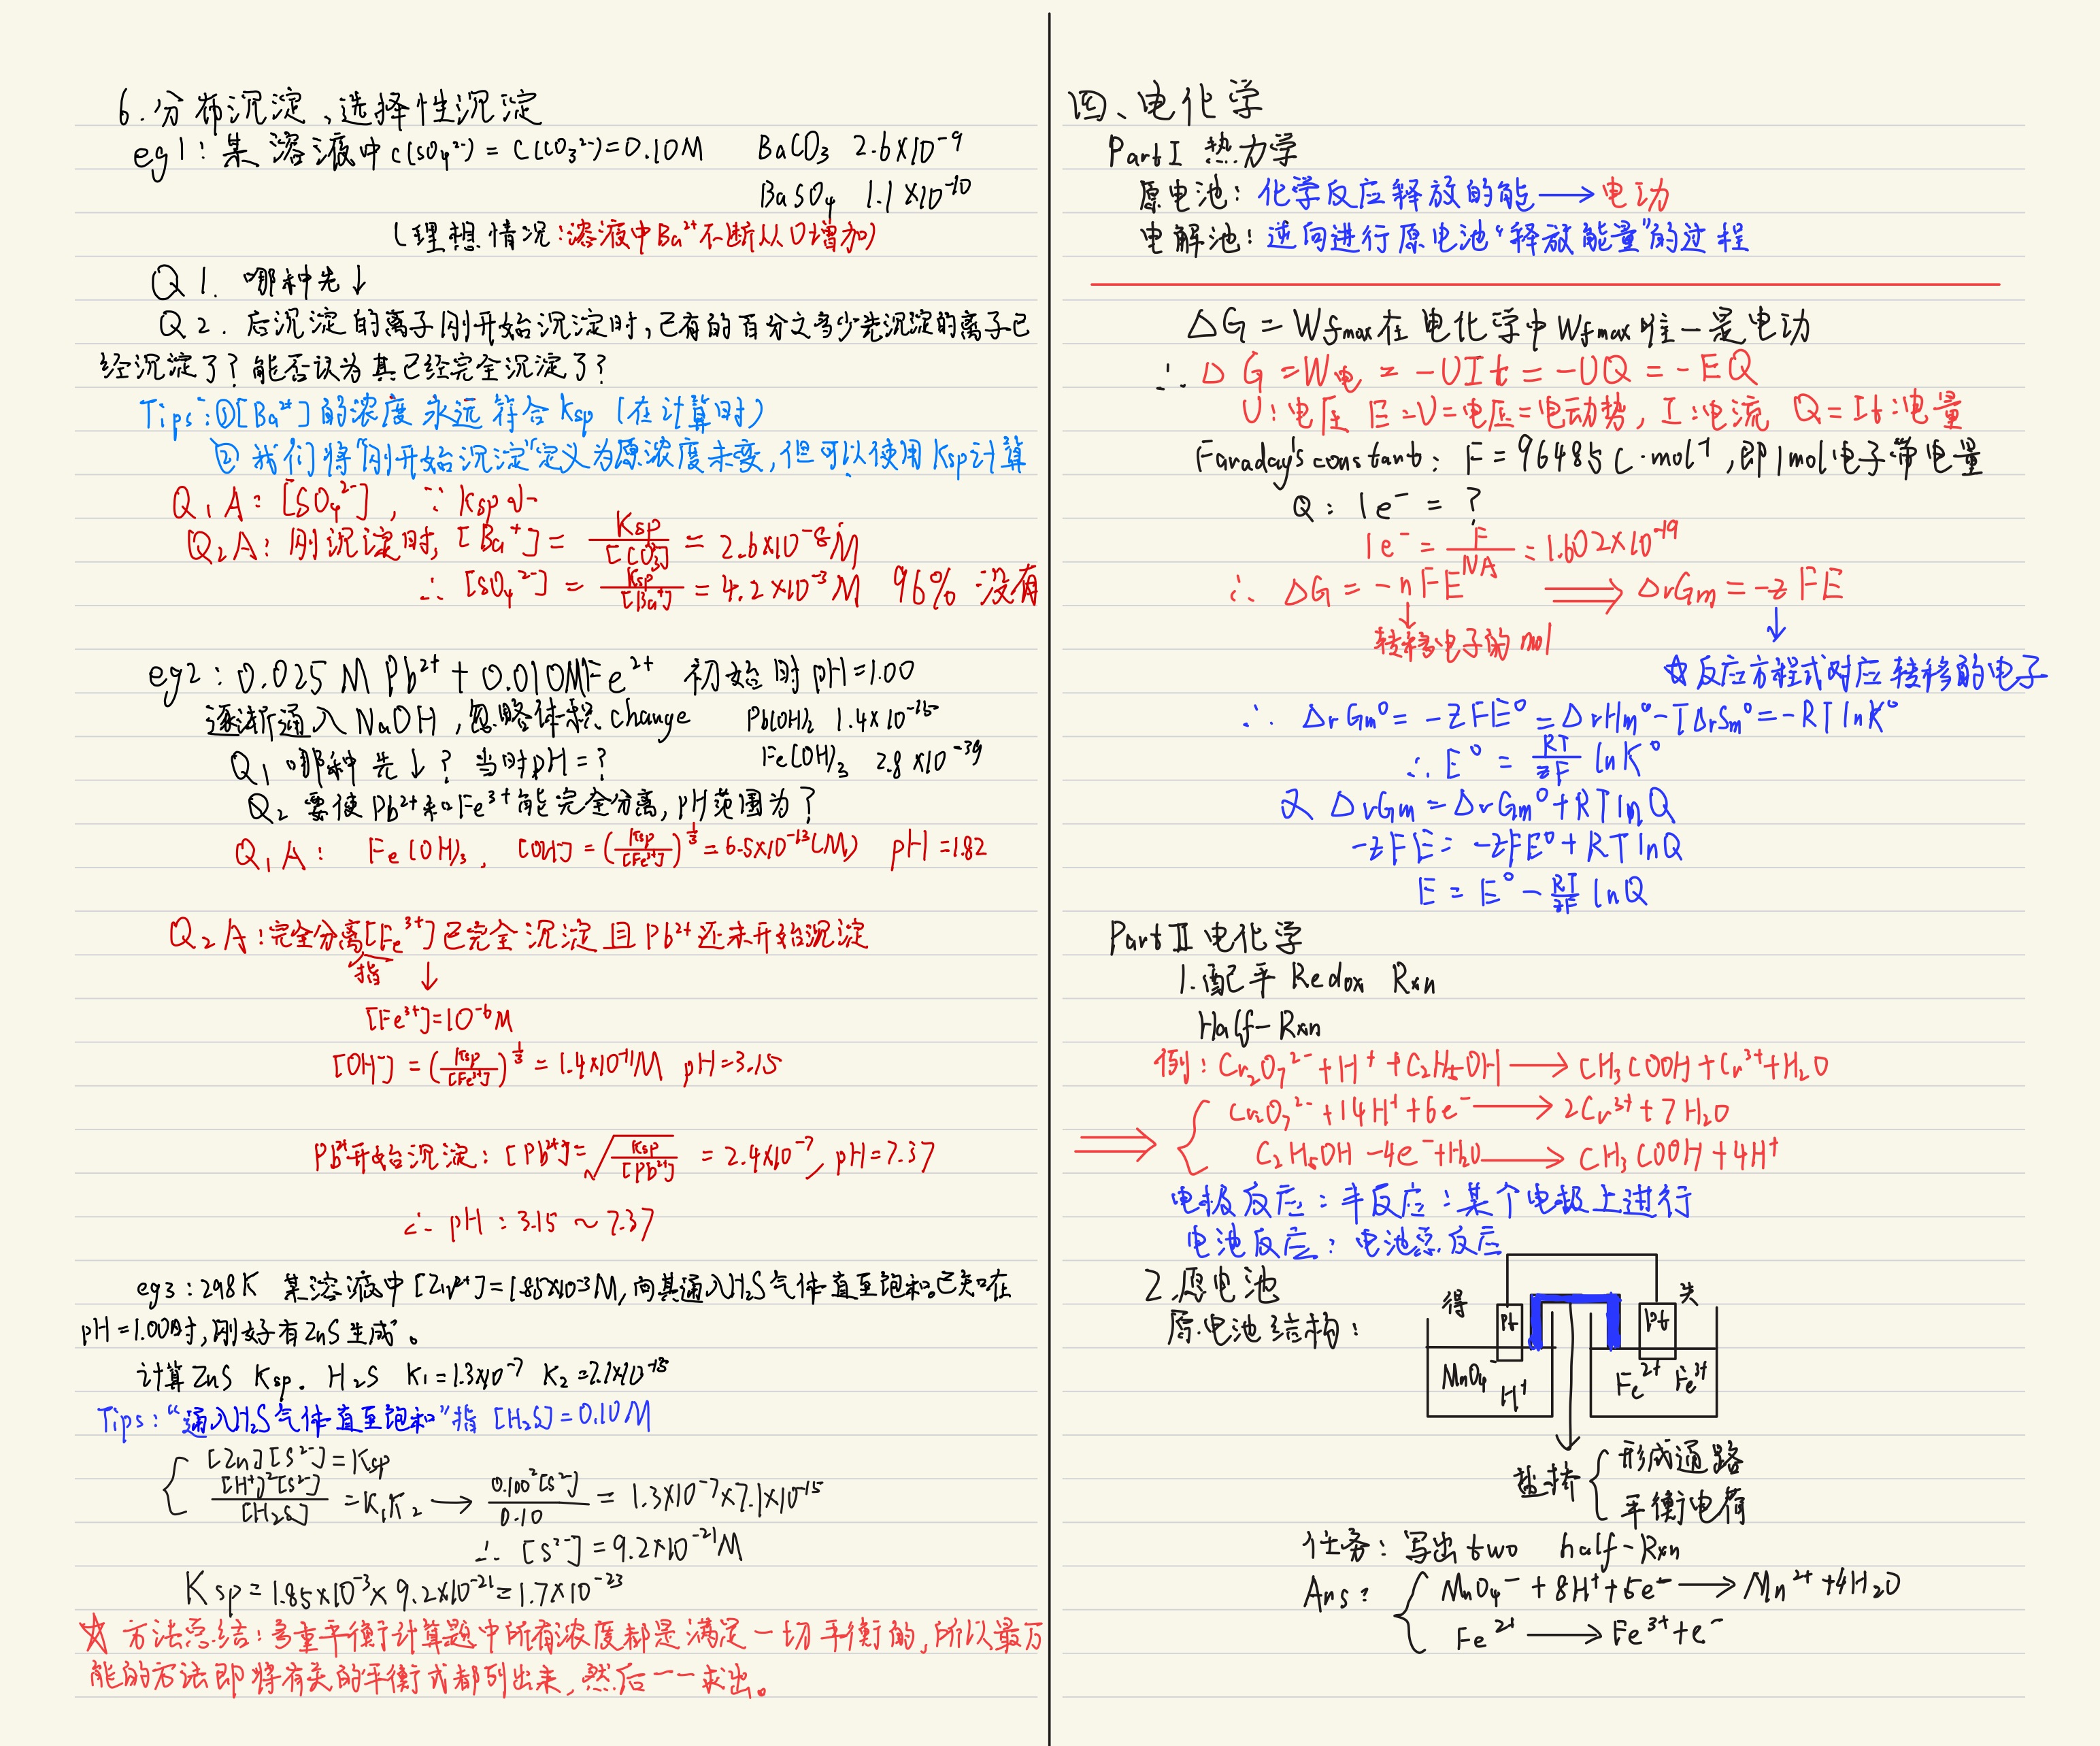 6.分布沉淀,选择性沉淀
eg1:某溶液中c(SO₄²⁻)=C(CO₃²⁻)=0.10M BaCO₃ 2.6×10⁻⁹
BaSO₄ 1.1×10⁻¹⁰
(理想情况:溶液中Ba²⁺不断从0增加)
Q1. 哪种先↓
Q2. 后沉淀的离子刚开始沉淀时,已有的百分之多少先沉淀的离子已
经沉淀了?能否认为其已经完全沉淀了?
Tips:①[Ba²⁺]的浓度永远符合Ksp(在计算时)
②我们将"刚开始沉淀"定义为原浓度未变,但可以使用Ksp计算
Q₁A:[SO₄²⁻],∵Ksp小
Q₂A:刚沉淀时,[Ba⁺]=Ksp/[CO₃]=2.6×10⁻⁸M
∴[SO₄²⁻]=Ksp/[Ba²⁺]=4.2×10⁻³M 96% 没有
eg2:0.025M Pb²⁺+0.010MFe²⁺ 初始时pH=1.00
逐渐通入NaOH,忽略体积change Pb(OH)₂ 1.4×10⁻¹⁵
Q₁哪种先↓?当时pH=? Fe(OH)₃ 2.8×10⁻³⁹
Q₂要使Pb²⁺和Fe³⁺能完全分离,pH范围为?
Q₁A: Fe(OH)₃, [OH⁻]=(Ksp/[Fe³⁺])^⅓=6.5×10⁻¹³(M) pH=1.82
Q₂A:完全分离[Fe³⁺]已完全沉淀且Pb²⁺还未开始沉淀
指 ↓
[Fe³⁺]=10⁻⁶M
[OH⁻]=(Ksp/[Fe³⁺])^⅓=1.4×10⁻¹¹M pH=3.15
Pb²⁺开始沉淀:[Pb²⁺]=√(Ksp/[Pb²⁺])=2.4×10⁻⁷,pH=7.37
∴pH:3.15~7.37
eg3:298K 某溶液中[Zn²⁺]=1.85×10⁻³M,向其通入H₂S气体直至饱和。已知在
pH=1.00时,刚好有ZnS生成。
计算ZnS Ksp. H₂S K₁=1.3×10⁻⁷ K₂=7.1×10⁻¹⁵
Tips:"通入H₂S气体直至饱和"指[H₂S]=0.10M
{[Zn][S²⁻]=Ksp
[H⁺]²[S²⁻]/[H₂S]=K₁K₂→0.100²[S²⁻]/0.10=1.3×10⁻⁷×7.1×10⁻¹⁵
∴[S²⁻]=9.2×10⁻²¹M
Ksp=1.85×10⁻³×9.2×10⁻²¹=1.7×10⁻²³
☆方法总结:多重平衡计算题中所有浓度都是满足一切平衡的,所以最万
能的方法即将有关的平衡式都列出来,然后一一求出。
四、电化学
PartⅠ 热力学
原电池:化学反应释放的能→电功
电解池:逆向进行原电池"释放能量"的过程
ΔG=Wfmax在电化学中Wfmax唯一是电功
∴ΔG=W电=-UIt=-UQ=-EQ
U:电压 E=U=电压=电动势,I:电流 Q=It:电量
Faraday's constant: F=96485C·mol⁻¹,即1mol电子带电量
Q:1e⁻=?
1e⁻=F/NA=1.602×10⁻¹⁹
∴ΔG=-nFE⟹ΔrGm=-zFE
↓ ↓
转移电子的mol
☆反应方程式对应转移的电子
∴ΔrGm°=-zFE°=ΔrHm°-TΔrSm°=-RTlnK°
∴E°=RT/zF lnK°
又ΔrGm=ΔrGm°+RTlnQ
-zFE=-zFE°+RTlnQ
E=E°-RT/zF lnQ
PartⅡ电化学
1.配平Redox Rxn
Half-Rxn
例:Cr₂O₇²⁻+H⁺+C₂H₅OH→CH₃COOH+Cr³⁺+H₂O
⟹{Cr₂O₇²⁻+14H⁺+6e⁻→2Cr³⁺+7H₂O
C₂H₅OH-4e⁻+H₂O→CH₃COOH+4H⁺
电极反应:半反应:某个电极上进行
电池反应:电池总反应
2.原电池
原电池结构:
得 Pt Pt 失
MnO₄⁻ H⁺ Fe²⁺ Fe³⁺
盐桥{形成通路
平衡电荷
任务:写出two half-Rxn
Ans:{MnO₄⁻+8H⁺+5e⁻→Mn²⁺+4H₂O
Fe²⁺→Fe³⁺+e⁻